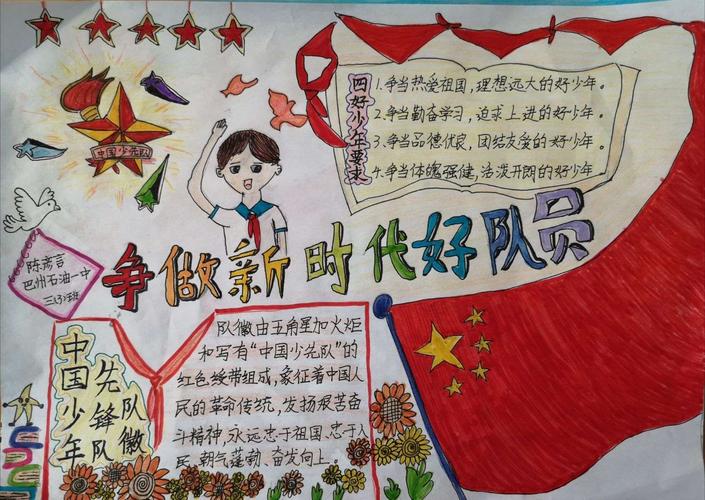 四好少年要求
1.争当热爱祖国,理想远大的好少年。
2.争当勤奋学习,追求上进的好少年。
3.争当品德优良,团结友爱的好少年。
4.争当体魄强健,活泼开朗的好少年。
中国少先队
争做新时代好队员
陈彦言
巴州石油一中
三(3)班
中国少年
先锋队
队徽
队徽由五角星加火炬
和写有“中国少先队”的
红色绶带组成,象征着中国人
民的革命传统,发扬艰苦奋
斗精神,永远忠于祖国、忠于人
民、朝气蓬勃、奋发向上。